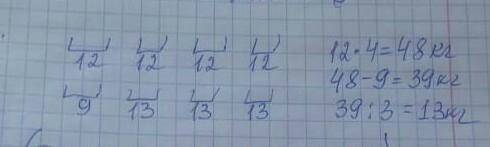 12 12 12 12
9 13 13 13
12·4=48кг
48-9=39кг
39:3=13кг